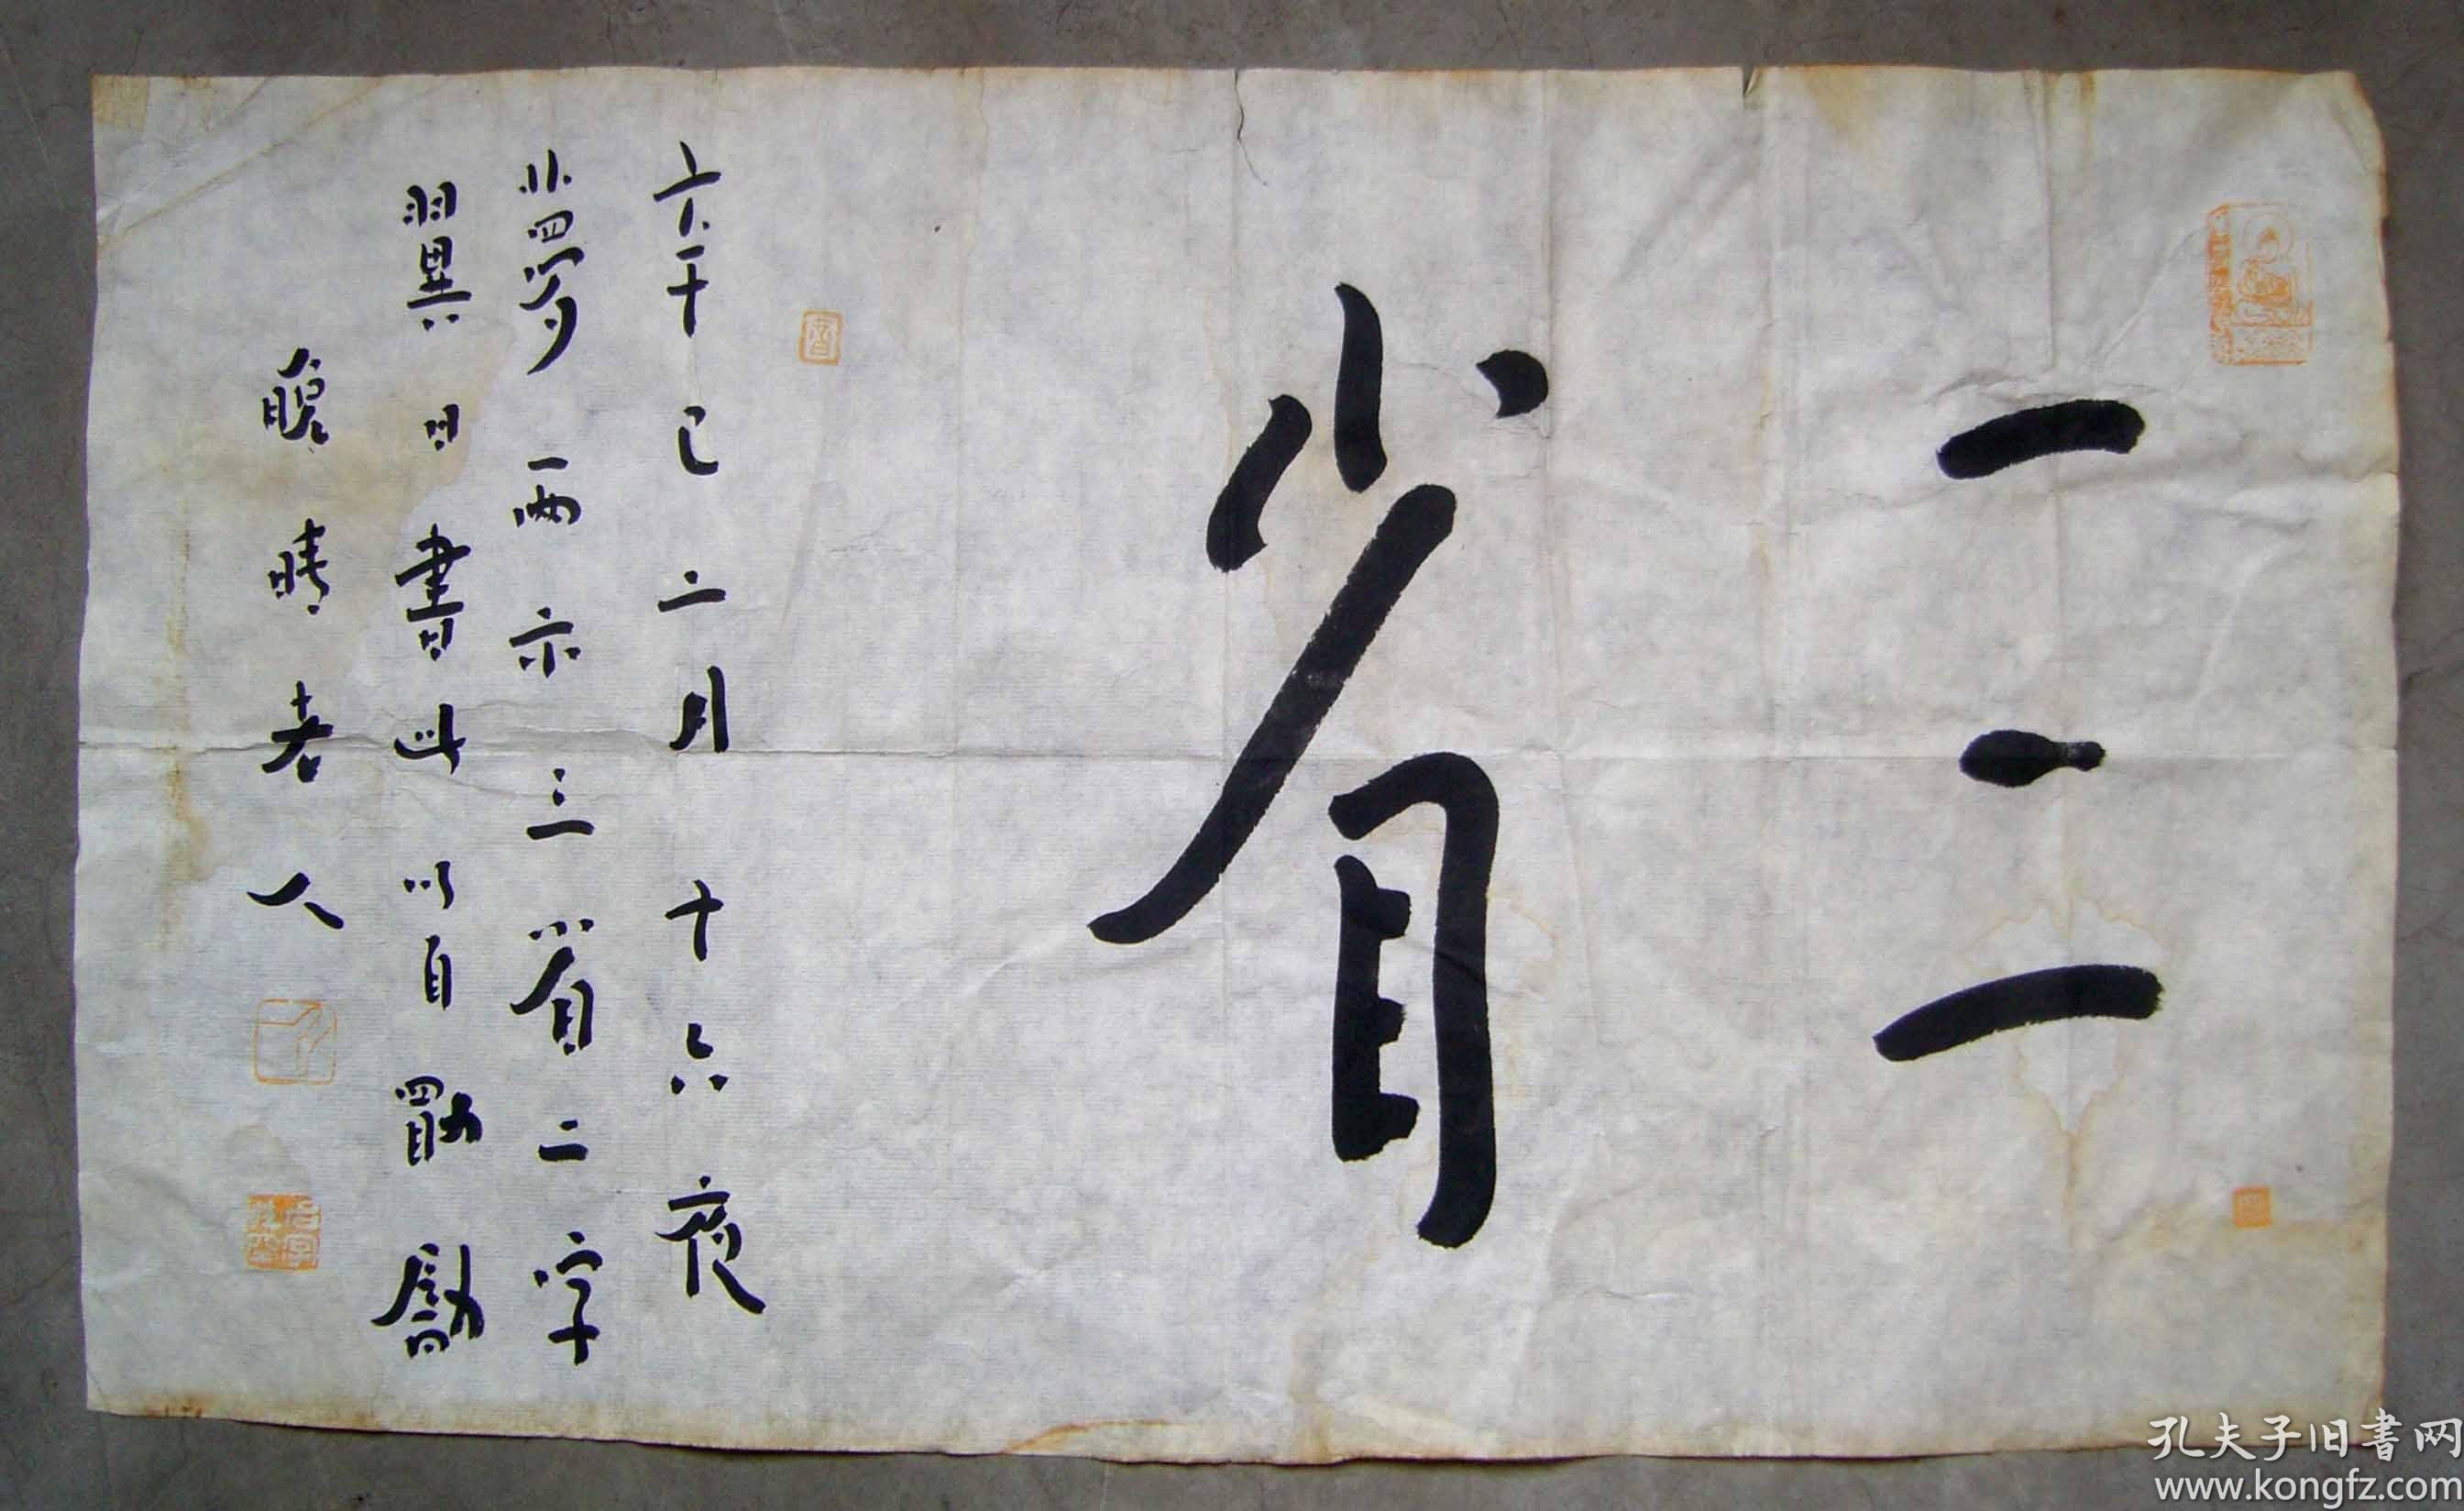 三省
辛巳二月十六夜
夢兩示三省二字
翼日書此以自勖勵
晚晴老人
孔夫子旧书网
www.kongfz.com